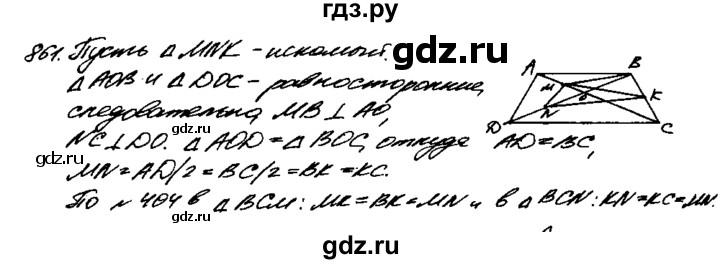 гдз.ру
861. Пусть △ MNK - искомый.
△ AOB и △ DOC - равносторонние,
следовательно, MB ⊥ AO,
NC ⊥ DO. △ AOD = △ BOC, откуда AD = BC,
MN = AD/2 = BC/2 = BK = KC.
По № 404 в △ BCM: MK = BK = MN и в △ BCN: KN = KC = MN.
A B
M O K
N
D C
gdz.ru
gdz.ru
gdz.ru
gdz.ru
gdz.ru
gdz.ru
gdz.ru